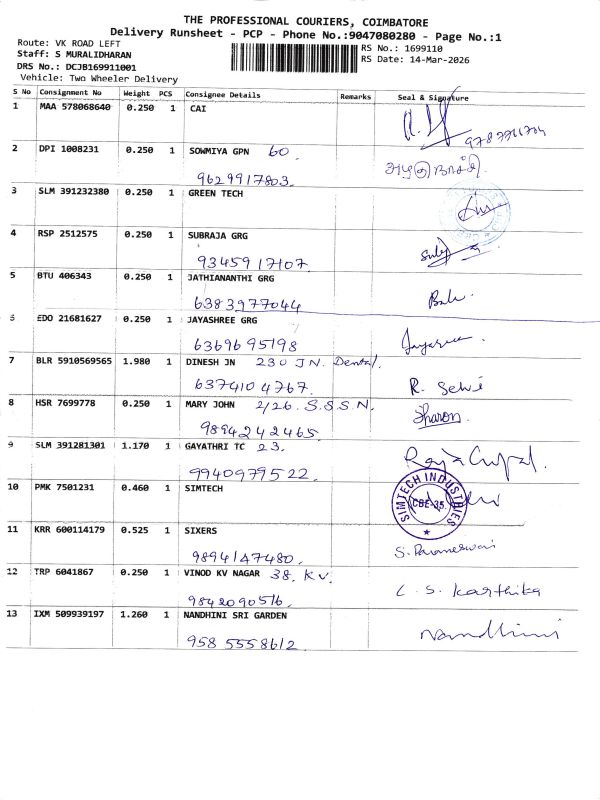 THE PROFESSIONAL COURIERS, COIMBATORE
Delivery Runsheet - PCP - Phone No.:9047080280 - Page No.:1
Route: VK ROAD LEFT
RS No.: 1699110
Staff: S MURALIDHARAN
RS Date: 14-Mar-2026
DRS No.: DCJB169911001
Vehicle: Two Wheeler Delivery
S No Consignment No Weight PCS Consignee Details Remarks Seal & Signature
1 MAA 578068640 0.250 1 CAI
2 DPI 1008231 0.250 1 SOWMIYA GPN 60.
9629917803.
3 SLM 391232380 0.250 1 GREEN TECH
4 RSP 2512575 0.250 1 SUBRAJA GRG
9345917107.
5 BTU 406343 0.250 1 JATHIANANTHI GRG
6383977044
6 EDO 21681627 0.250 1 JAYASHREE GRG
6369695198
7 BLR 5910569565 1.980 1 DINESH JN 230 JN. Dental.
6374104767. R. Selvi
8 HSR 7699778 0.250 1 MARY JOHN 2/26. S.S.S.N.
Sharon.
9894242465.
9 SLM 391281301 1.170 1 GAYATHRI TC 23.
9940979522.
10 PMK 7501231 0.460 1 SIMTECH
SIMTECH INDUSTRIES
CBE-35.
11 KRR 600114179 0.525 1 SIXERS
9894147480.
12 TRP 6041867 0.250 1 VINOD KV NAGAR 38, KV.
9842090516. C. S. Karthika
13 IXM 509939197 1.260 1 NANDHINI SRI GARDEN
9585558612. Nandhini